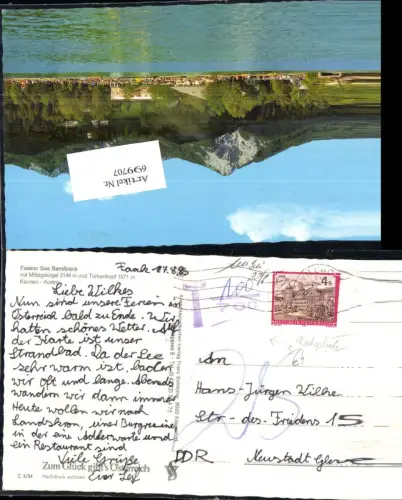 Artikel Nr.
699707
Faaker See Sandbank
mit Mittagskogel 2144 m und Türkenkopf 1571 m
Kärnten - Austria
Faak, 17.8.85
Liebe Wilkes
Nun sind unsere Ferien in
Österreich bald zu Ende. Wir
hatten schönes Wetter. Auf
der Karte ist unser
Strandbad. Da der See
sehr warm ist, baden
wir oft und lange. Abends
wandern wir dann immer
Heute wollen wir nach
Landskron, einer Burgruine
in der eine Adlerwarte und
ein Restaurant sind
Viele Grüße
Zum Glück gibt's Österreich
C 3/54 Nachdruck verboten
T
100
700
4 S
An
Hans-Jürgen Wilke
Str. des Friedens 15
DDR Neustadt Glewe